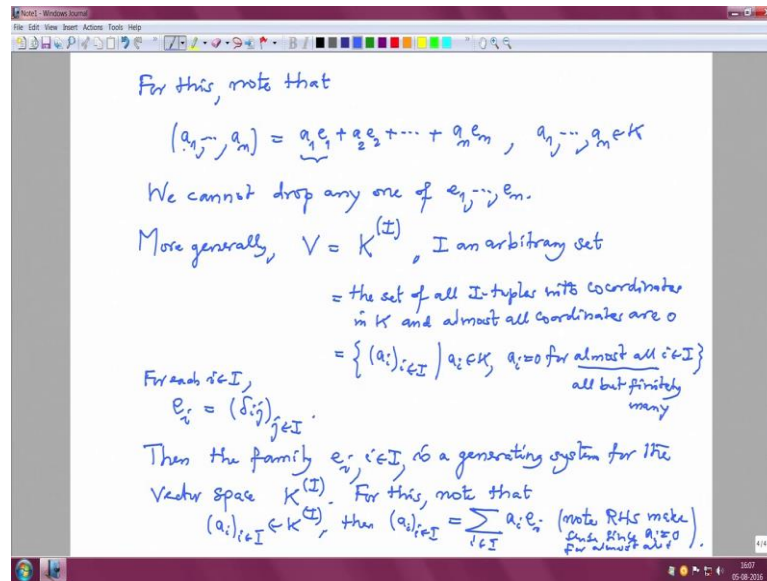 Note1 - Windows Journal
File Edit View Insert Actions Tools Help
For this, note that
(a₁, ..., aₙ) = a₁e₁ + a₂e₂ + ··· + aₙeₙ , a₁, ..., aₙ ∈ K
We cannot drop any one of e₁, ..., eₙ.
More generally, V = K^(I), I an arbitrary set
= the set of all I-tuples with cocordinates
in K and almost all coordinates are 0
= { (aᵢ)ᵢ∈I | aᵢ ∈ K, aᵢ = 0 for almost all i ∈ I }
all but finitely
many
For each i ∈ I,
eᵢ = (δᵢⱼ)ⱼ∈I.
Then the family eᵢ, i ∈ I, is a generating system for the
vector space K^(I). For this, note that
(aᵢ)ᵢ∈I ∈ K^(I), then (aᵢ)ᵢ∈I = ∑ᵢ∈I aᵢ eᵢ (note RHS make
sense since aᵢ = 0
for almost all).
4/4
16:07
05-08-2016